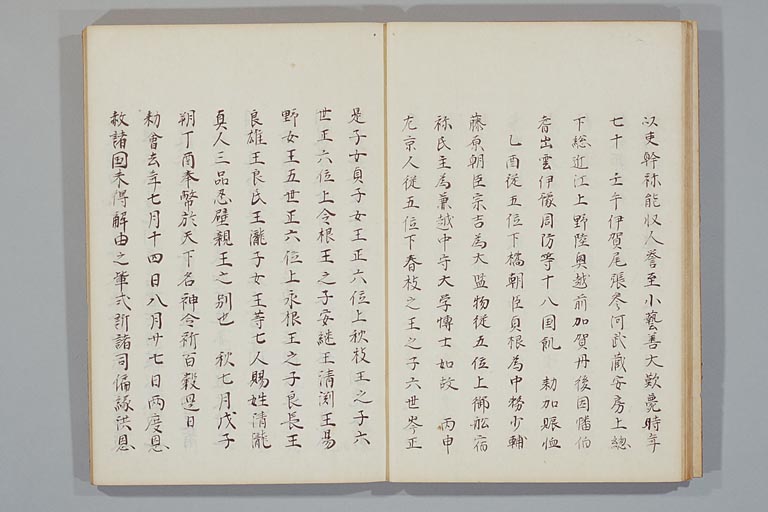 以吏幹称能収人誉至小藝善大歎薨時年
七十　壬午伊賀尾張参河武蔵安房上総
下総近江上野陸奥越前加賀丹後因幡伯
耆出雲伊豫周防等十八国飢　勅加賑恤
乙酉従五位下橘朝臣貞根為中務少輔
藤原朝臣宗吉為大監物従五位上御船宿
祢氏主為兼越中守大学博士如故　丙申
左京人従五位下春枝之王之子六世岑正
是子女貞子女王正六位上秋枝王之子六
世正六位上令根王之子安継王清渕王湯
野女王五世正六位上永根王之子良長王
良雄王良氏王瀧子女王等七人賜姓清瀧
真人三品忍壁親王之別也　秋七月戊子
朔丁酉奉幣於天下名神令祈百穀是日
勅會去年七月十四日八月廿七日両度恩
赦諸国未得解由之輩式所諸司偏縁洪恩